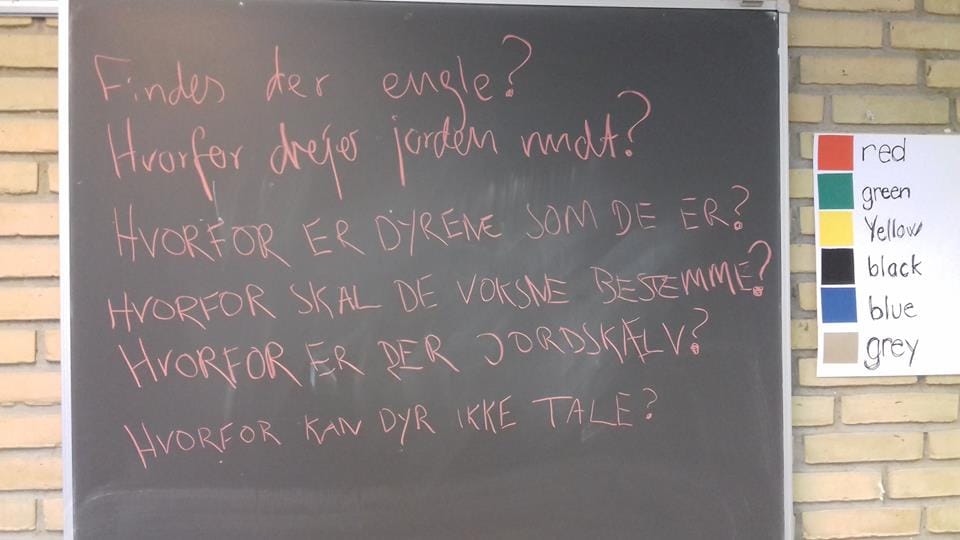 Findes der engle?
Hvorfor drejer jorden rundt?
HVORFOR ER DYRENE SOM DE ER?
HVORFOR SKAL DE VOKSNE BESTEMME?
HVORFOR ER DER JORDSKÆLV?
HVORFOR KAN DYR IKKE TALE?
red
green
Yellow
black
blue
grey